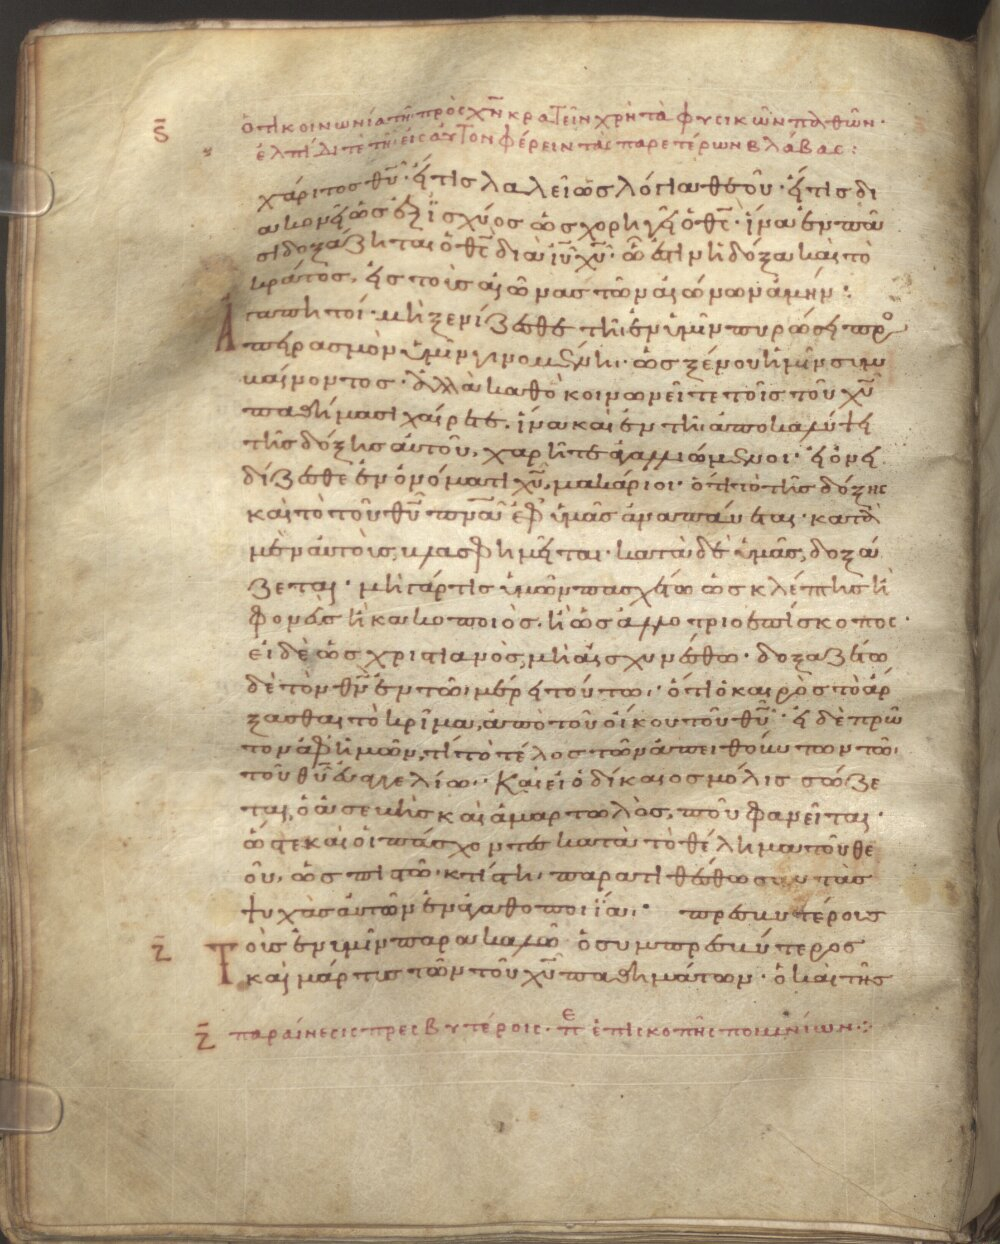 ϛ̄ ὅτι κοινωνία τῆ πρὸς χ̅ν̅ κρατεῖν χρὴ τὰ φυσικῶν παθῶν·
ἐλπίδι τὲ τῆ εἰς αὐτὸν φέρειν τὰς παρ ετέρων βλάβας:
χάριτος θ̅υ̅· εἴ τις λαλεῖ ὡς λόγια θεοῦ· εἴ τις δι
ακονεῖ ὡς ἐξ ἰσχύος ὡς χορηγεῖ ὁ θ̅ς̅· ἵνα ἐν πᾶ
σι δοξάζηται ὁ θ̅ς̅ διὰ ι̅υ̅ χ̅υ̅· ᾧ ἐστιν ἡ δόξα καὶ τὸ
κράτος, εἰς τοὺς αἰῶνας τῶν αἰώνων ἀμήν:
Ἀγαπητοί· μὴ ξενίζεσθε τῇ ἐν ὑμῖν πυρώσει προ
πειρασμὸν ὑμῖν γινομένη· ὡς ξένου ἡμῖν συμ
βαίνοντος· ἀλλὰ καθὸ κοινωνεῖτε τοῖς τοῦ χ̅υ̅
παθήμασι χαίρετε, ἵνα καὶ ἐν τῇ ἀποκαλύψει
τῆς δόξης αὐτοῦ, χαρῆτε ἀγαλλιώμενοι· εἰ ὀνει
δίζεσθε ἐν ὀνόματι χ̅υ̅, μακάριοι· ὅτι τὸ τῆς δόξης
καὶ τὸ τοῦ θ̅υ̅ π̅ν̅α̅ ἐφ ὑμᾶς ἀναπαύεται· κατὰ
μὲν αὐτοὺς, βλασφημεῖται· κατὰ δὲ ὑμᾶς, δοξά
ζεται· μὴ γάρ τις ὑμῶν πασχέτω ὡς κλέπτης ἢ
φονεὺς ἢ κακοποιὸς· ἢ ὡς ἀλλοτριοεπίσκοπος·
εἰ δὲ ὡς χριστιανὸς, μὴ αἰσχυνέσθω· δοξαζέτω
δὲ τὸν θ̅ν̅ ἐν τῶ μέρει τούτω· ὅτι ὁ καιρὸς τὸ ἄρ
ξασθαι τὸ κρῖμα, ἀπὸ τοῦ οἴκου τοῦ θ̅υ̅· εἰ δὲ πρῶ
τον ἀφ ἡμῶν, τί τὸ τέλος τῶν ἀπειθούντων τῶ
τοῦ θ̅υ̅ εὐαγγελίω· Καὶ εἰ ὁ δίκαιος μόλις σώζε
ται, ὁ ἀσεβὴς καὶ ἁμαρτωλὸς, ποῦ φανεῖται·
ὥστε καὶ οἱ πάσχοντες κατὰ τὸ θέλημα τοῦ θε
οῦ, ὡς πιστῶ κτίστη, παρατιθέσθωσαν τὰς
ψυχὰς αὐτῶν ἐν ἀγαθοποιΐα· πρεσβυτέροις
ζ̄ Τοῖς ἐν ὑμῖν παρακαλῶ ὁ συμπρεσβύτερος
καὶ μάρτυς τῶν τοῦ χ̅υ̅ παθημάτων· ὁ καὶ τῆς
ζ̄ παραίνεσις πρεσβυτέροις· πε ἐπισκοπῆς ποιμνίων: